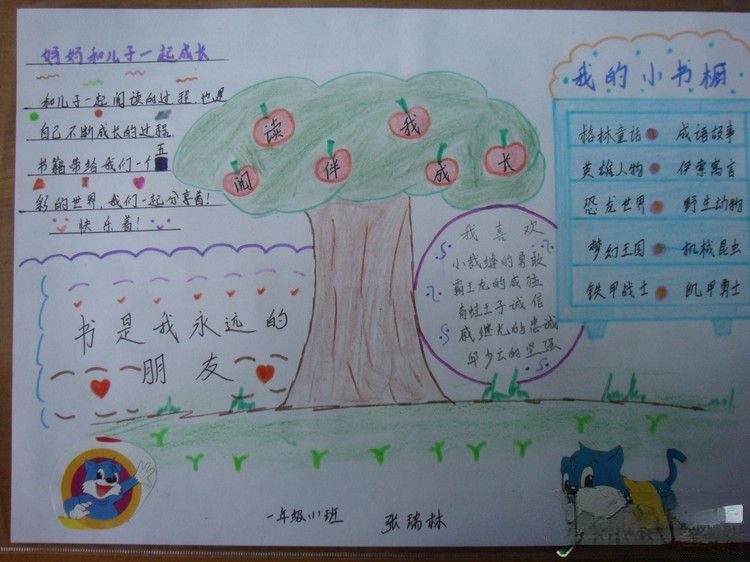 妈妈和儿子一起成长
和儿子一起阅读的过程也是
自己不断成长的过程
书籍带给我们一个五
彩的世界,我们一起分享着!
快乐着!
阅 读 伴 我 成 长
我喜欢
小裁缝的勇敢
霸王龙的威猛
青蛙王子诚信
戚继光的忠诚
邱少云的坚强
我的小书橱
格林童话 成语故事
英雄人物 伊索寓言
恐龙世界 野生动物
梦幻王国 机械昆虫
铁甲战士 凯甲勇士
书是我永远的
朋友
一年级小班 张瑞林